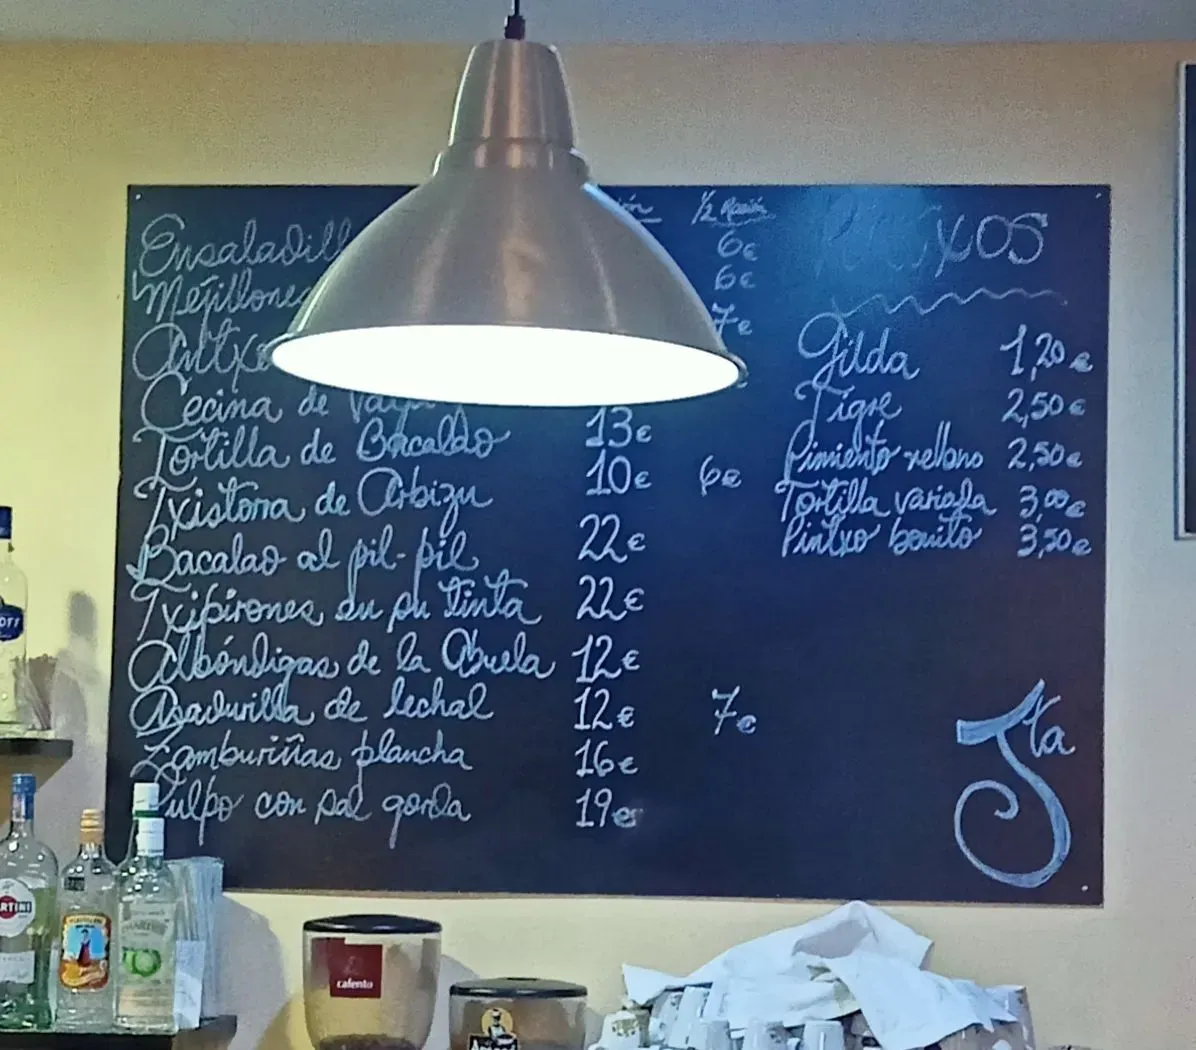 1/2 Ración
Ensaladill
6€
Mejillones
6€
Antxo
7€
Cecina de Vaca
Tortilla de Bacaldo 13€
Txistorra de Arbizu 10€ 6€
Bacalao al pil-pil 22€
Txipirones en su tinta 22€
Albóndigas de la Abuela 12€
Asadurilla de lechal 12€ 7€
Zamburiñas plancha 16€
Pulpo con sal gorda 19€
Gilda 1,20€
Tigre 2,50€
Pimiento relleno 2,50€
Tortilla variada 3,00€
Pintxo bonito 3,50€
Jta
RTINI
cafento